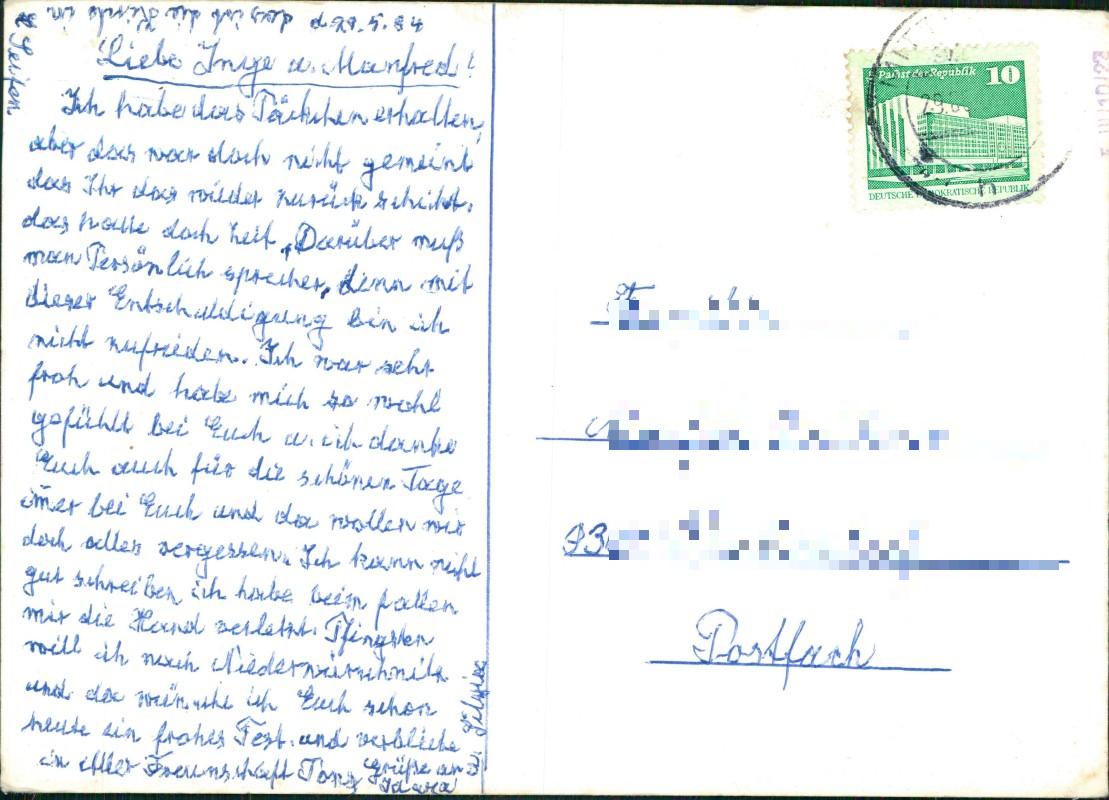 Liebe Inge u. Manfred!
Ich habe das Päckchen erhalten,
aber das war doch nicht gemeint
das Ihr das wieder zurück schickt,
das hatte doch Zeit. Darüber muß
man Persönlich sprechen, denn mit
dieser Entschuldigung bin ich
nicht zufrieden. Ich war sehr
froh und habe mich so wohl
gefühlt bei Euch u. ich danke
Euch auch für die schönen Tage
immer bei Euch und da wollen wir
doch alles vergessen. Ich kann nicht
gut schreiben ich habe beim fallen
mir die Hand verletzt. Pfingsten
will ich nach Niederwürschnitz
und da wünsche ich Euch schon
heute ein frohes Fest. und verbleibe
in alter Freundschaft
Grüße an
das ist die Kirche in
Seiffen
Palast der Republik 10
DEUTSCHE DEMOKRATISCHE REPUBLIK
93
Postfach